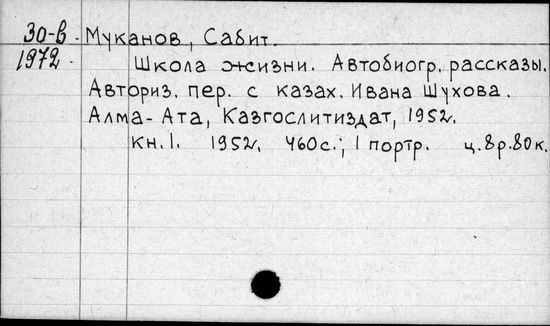 30-в. Муканов, Сабит.
1972. Школа жизни. Автобиогр. рассказы.
Авториз. пер. с казах. Ивана Шухова.
Алма-Ата, Казгослитиздат, 1952.
кн.1. 1952. 460с.; 1 портр. ц.8р.80к.